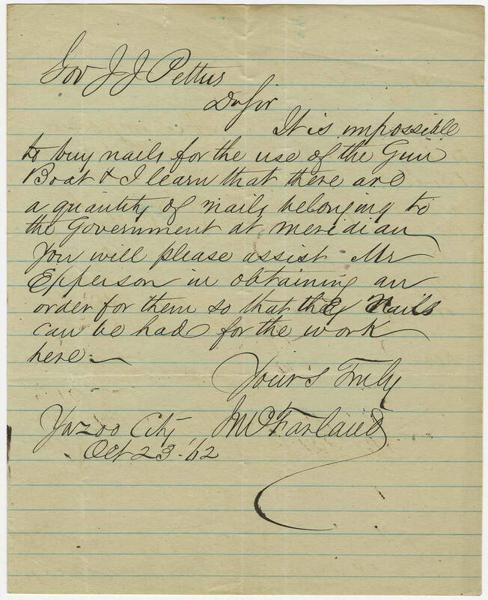 Gov J J Pettus
Dr Sir
It is impossible
to buy nails for the use of the Gun
Boat & I learn that there are
a quantity of nails belonging to
the Government at meridian
You will please assist Mr
Epperson in obtaining an
order for them so that the Nails
can be had for the work
here
Yours Truly
Yazoo City J McFarland
Oct 23 '62